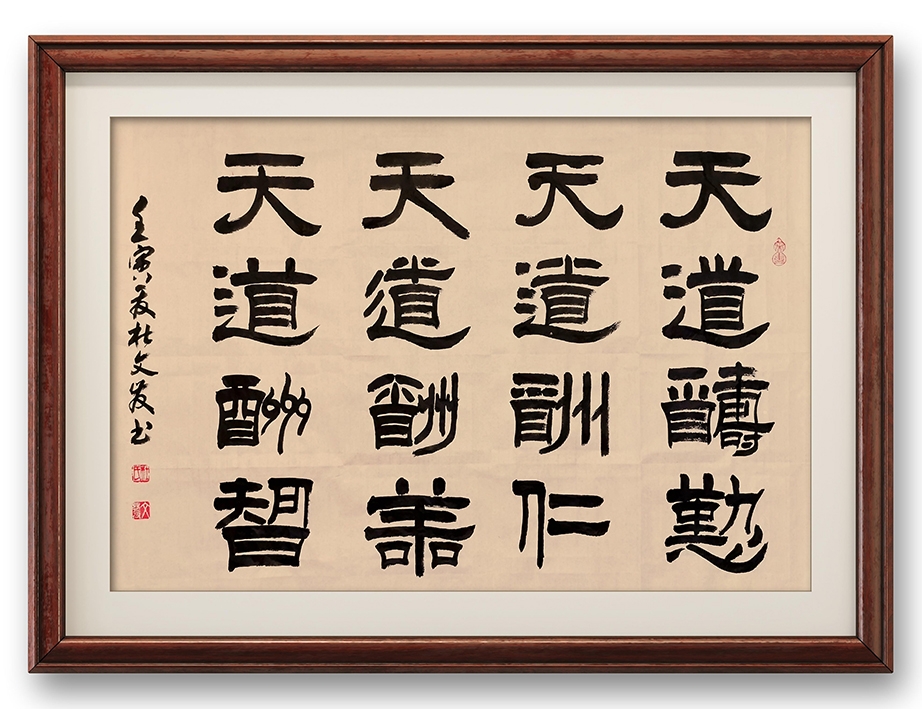 天道醻懃
天道酬仁
天道酬善
天道酬智
壬寅夏杜文发书